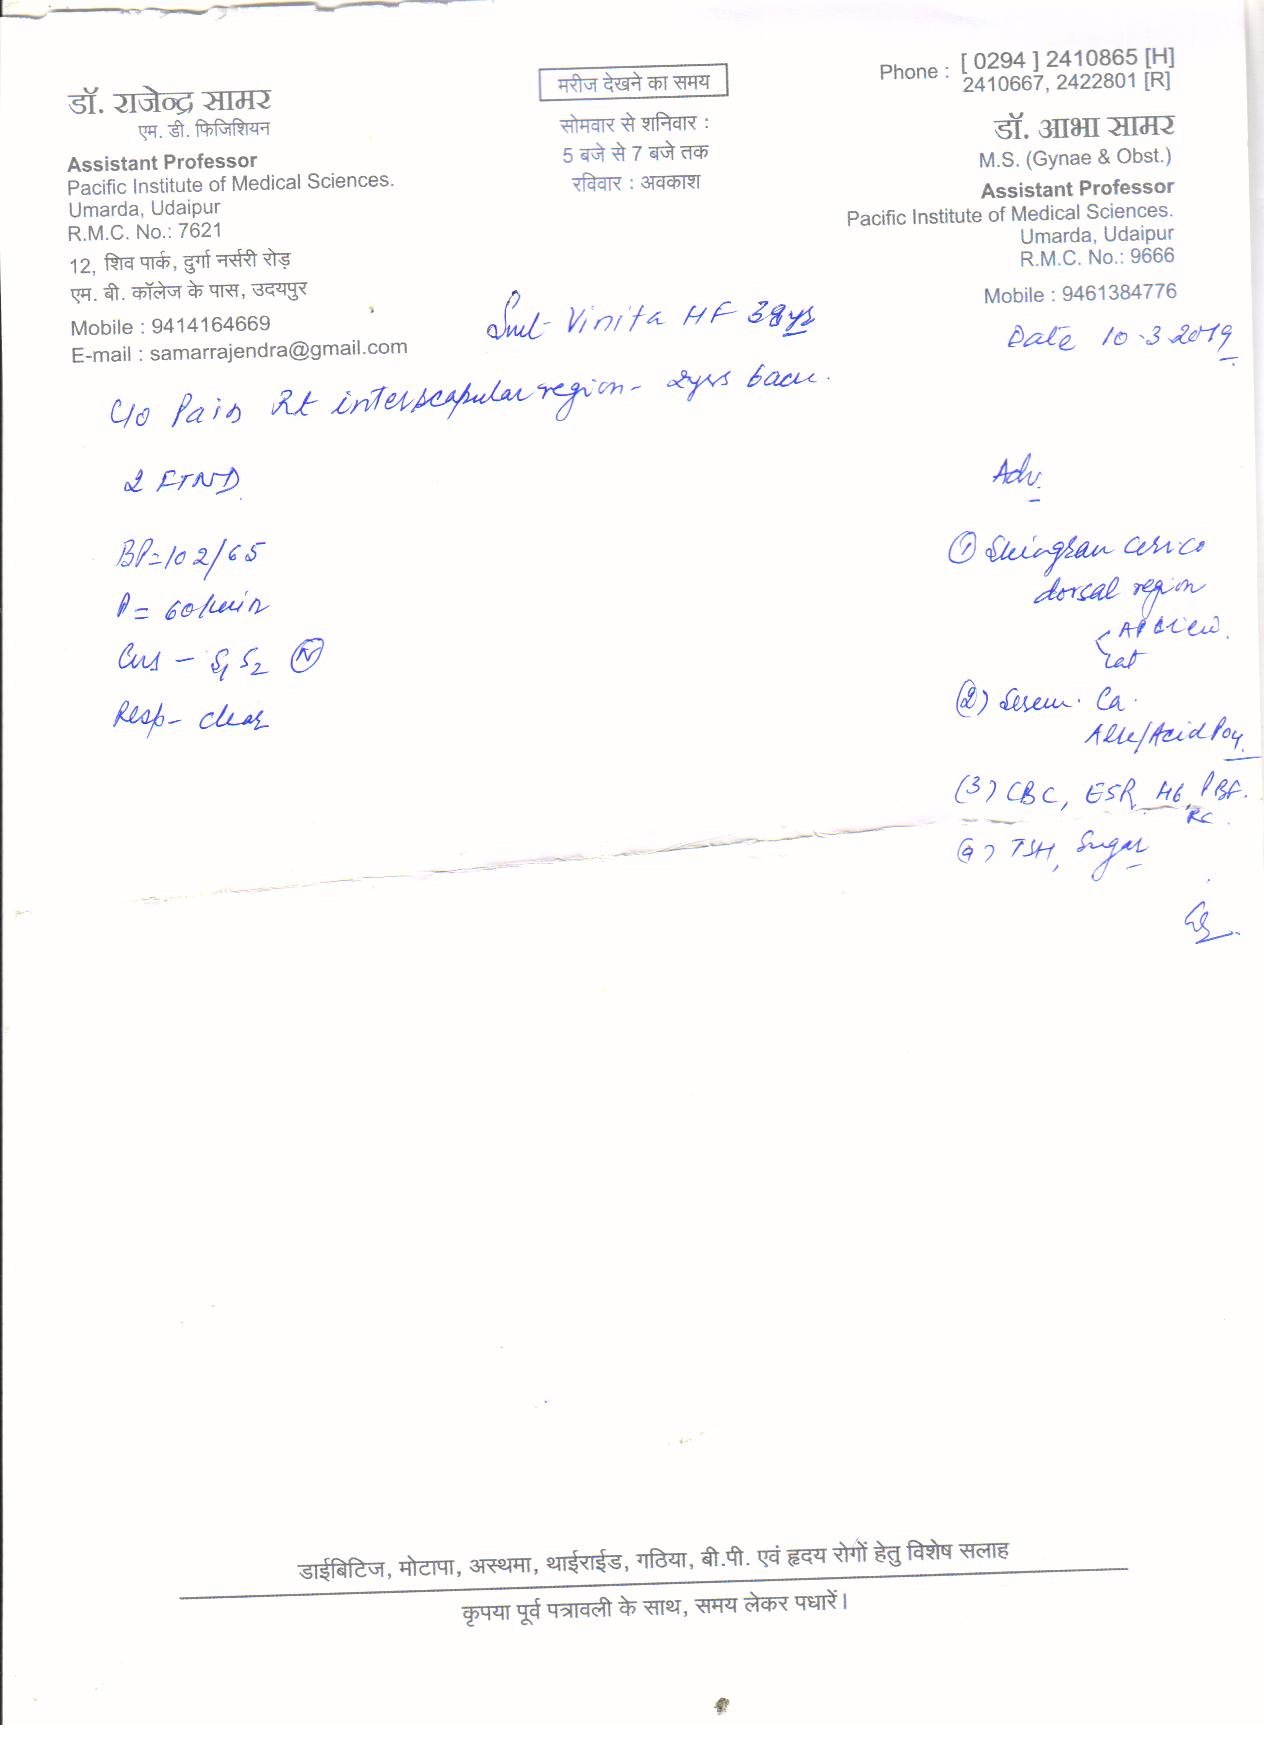 डॉ. राजेन्द्र सामर
एम. डी. फिजिशियन
Assistant Professor
Pacific Institute of Medical Sciences.
Umarda, Udaipur
R.M.C. No.: 7621
12, शिव पार्क, दुर्गा नर्सरी रोड़
एम. बी. कॉलेज के पास, उदयपुर
Mobile : 9414164669
E-mail : samarrajendra@gmail.com
मरीज देखने का समय
सोमवार से शनिवार :
5 बजे से 7 बजे तक
रविवार : अवकाश
Phone : [ 0294 ] 2410865 [H]
2410667, 2422801 [R]
डॉ. आभा सामर
M.S. (Gynae & Obst.)
Assistant Professor
Pacific Institute of Medical Sciences.
Umarda, Udaipur
R.M.C. No.: 9666
Mobile : 9461384776
Smt- Vinita HF 38ys
Date 10-3-2019
C/o Pain Rt interscapular region - 2yrs back.
2 FTND
BP=102/65
P = 60/min
CVS - S1 S2 N
Resp- clear
Adv.
(1) cervico
dorsal region
AP view.
Lat
(2) Serum. Ca.
Alk/Acid
(3) CBC, ESR, Hb, PBF.
RC.
(4) TSH, Sugar
डाईबिटिज, मोटापा, अस्थमा, थाईराईड, गठिया, बी.पी. एवं हृदय रोगों हेतु विशेष सलाह
कृपया पूर्व पत्रावली के साथ, समय लेकर पधारें।